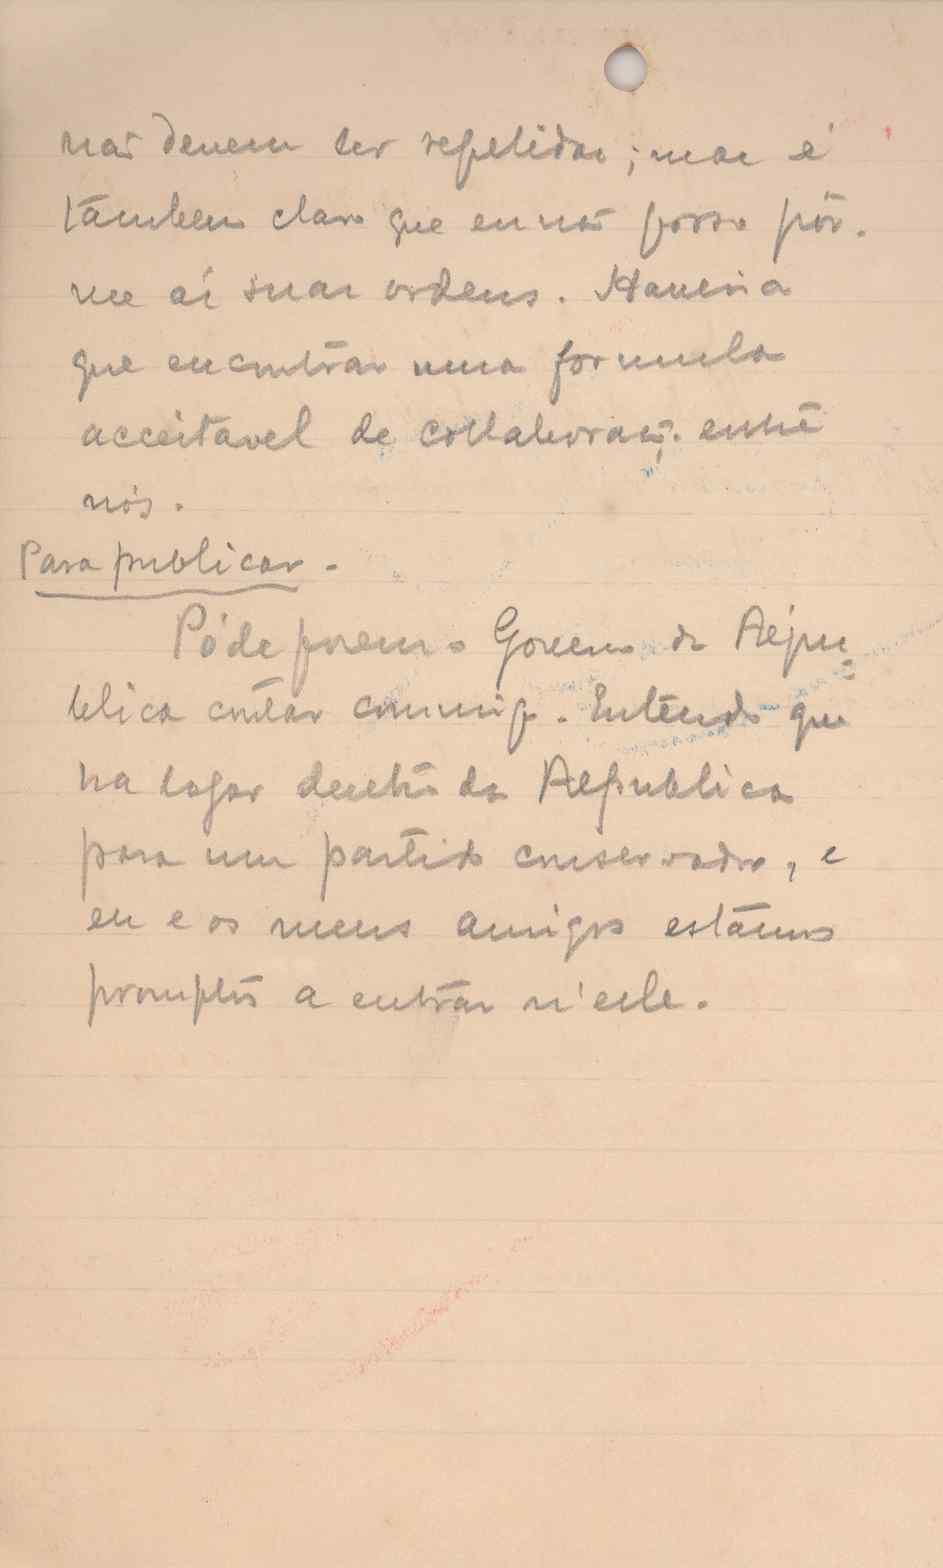 não devem ser repetidas; mas é
tambem claro que eu não posso pôr-
me ás suas ordens. Haveria
que encontrar uma formula
acceitavel de collaboração entre
nós.
Para publicar -
Póde porem o Governo da Répu-
blica contar commigo. Entendo que
ha logar dentro da Republica
para um partido conservador, e
eu e os meus amigos estamos
promptos a entrar n'elle.